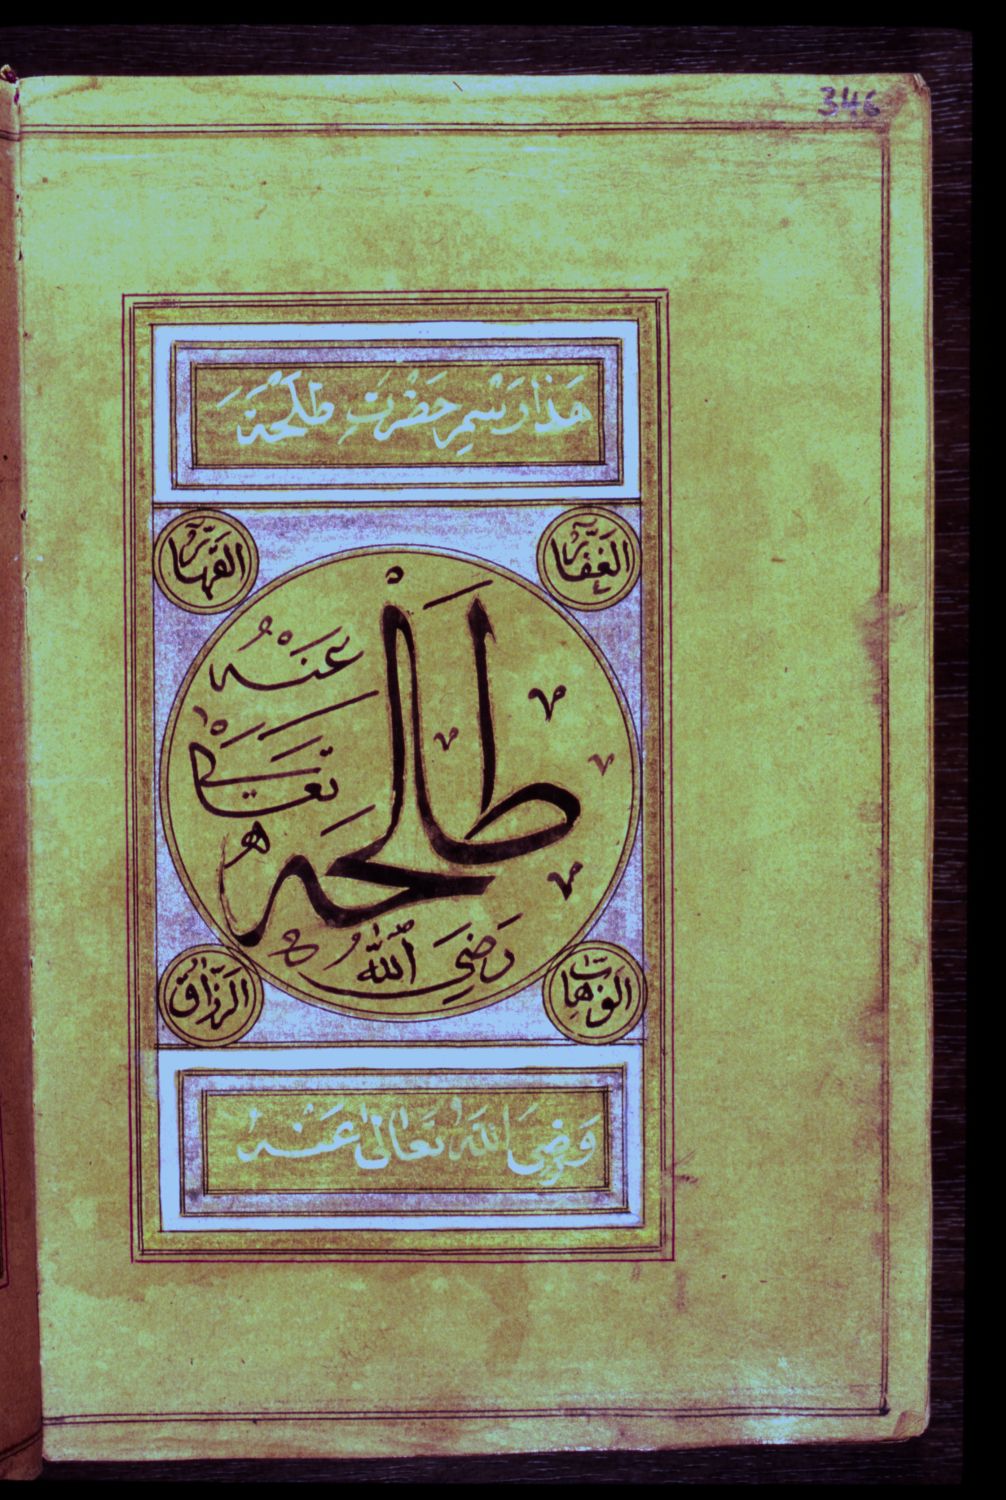 346
هَذَا رَسْمِ حَضْرَتِ طَلْحَهَ
الغَفَّار
القَهَّار
طَالْحَه
رَضِيَ اللّٰه
تعَالٰى
عَنْهُ
الوَهَّاب
الرَزَّاق
رَضِيَ اللّٰهُ تَعَالٰى عَنْهُ